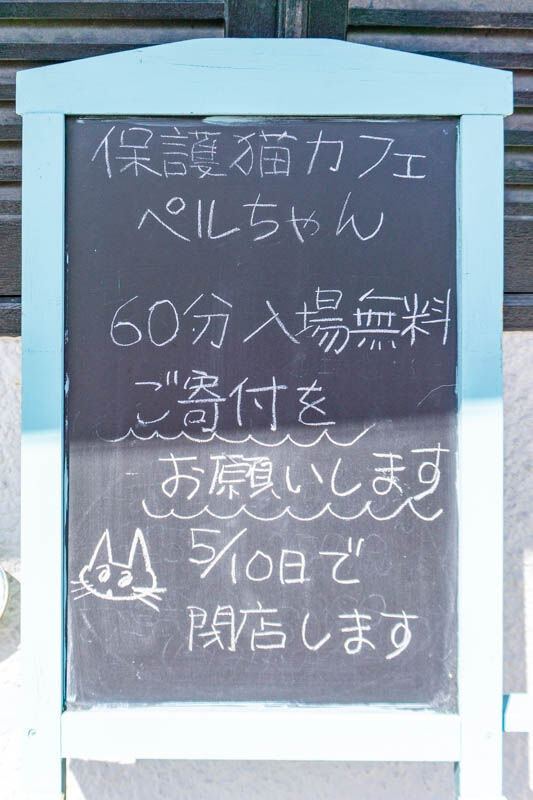 保護猫カフェ
ペルちゃん
60分入場無料
ご寄付を
お願いします
5/10日で
閉店します